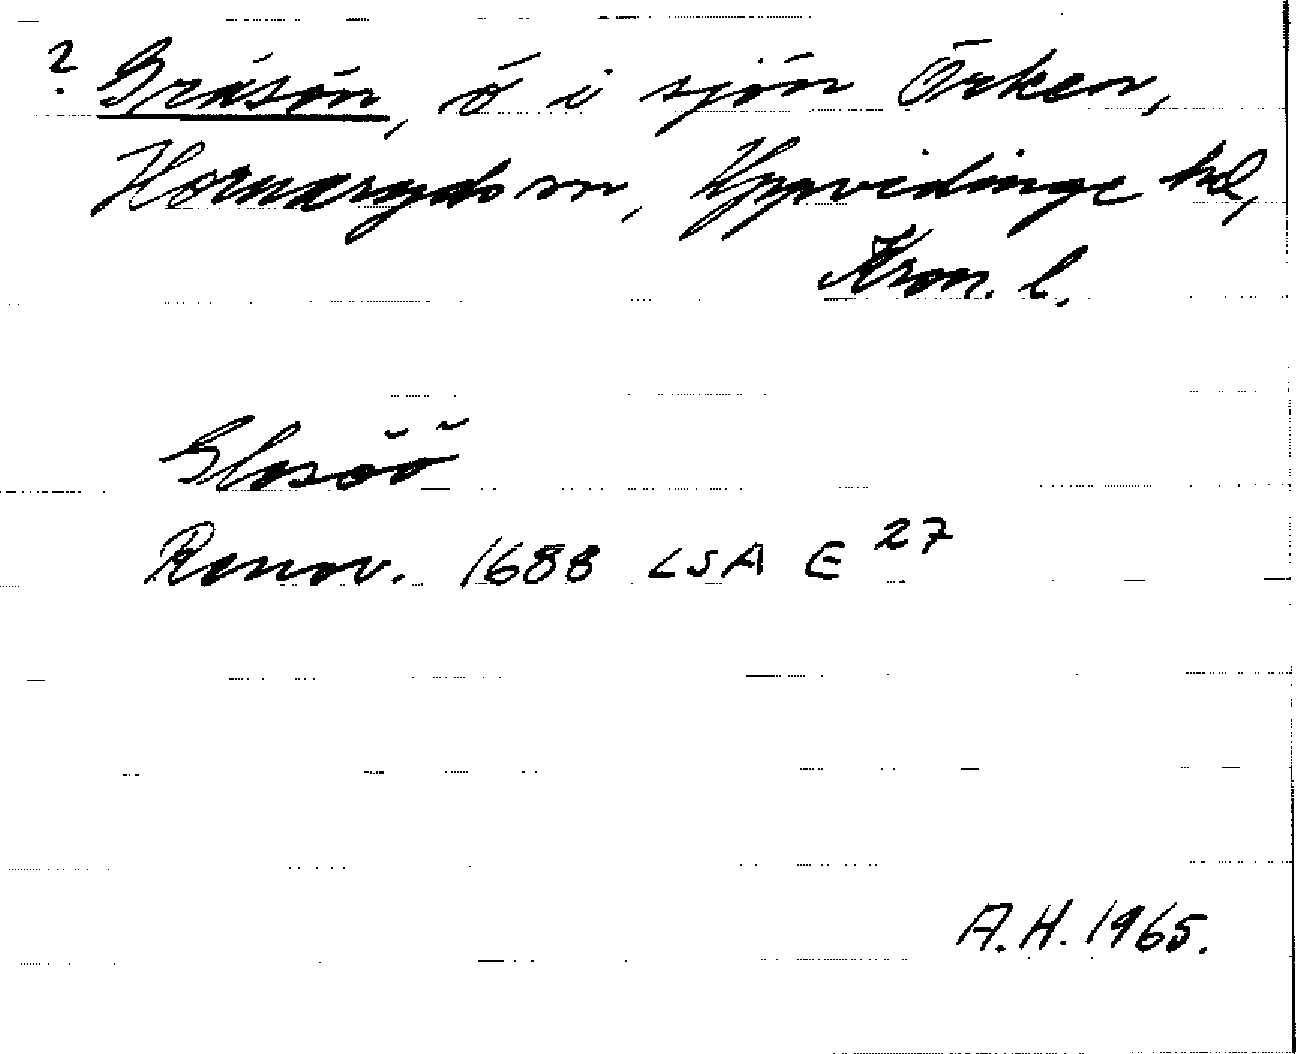 ? Gräsön, ö i sjön Örken,
Hornaryds sn, Uppvidinge hd,
Kron. l.
Glasöö
Renov. 1688 LSA E 27
A.H. 1965.